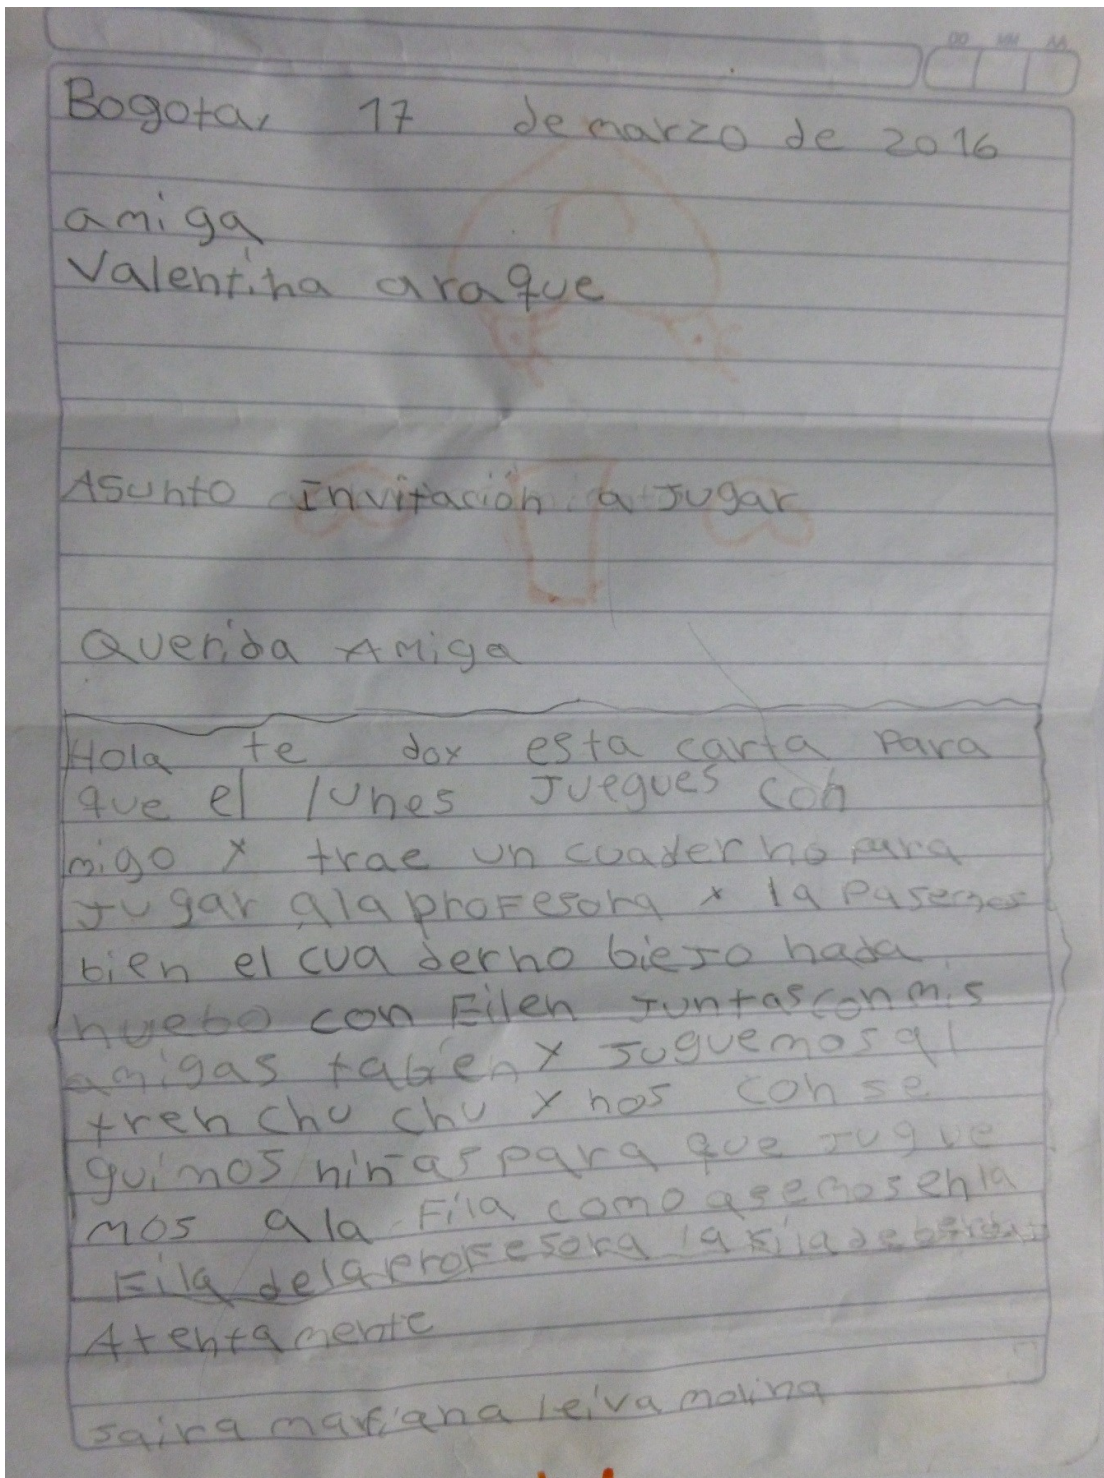 DD MM AA
Bogota, 17 de marzo de 2016
amiga
Valentina araque
Asunto Invitación a Jugar
Querida Amiga
Hola te doy esta carta Para
que el lunes Juegues con
migo y trae un cuaderno para
Jugar ala profesora y la Pasemos
bien el cua derno bieJo nada
nuebo con Eilen Juntas con mis
amigas tabien y Juguemos al
tren chu chu y nos con se
guimos niñas para que Jugue
mos ala Fila como asemos en la
Fila dela profesora la fila de
Atentamente
saira mariana leiva molina